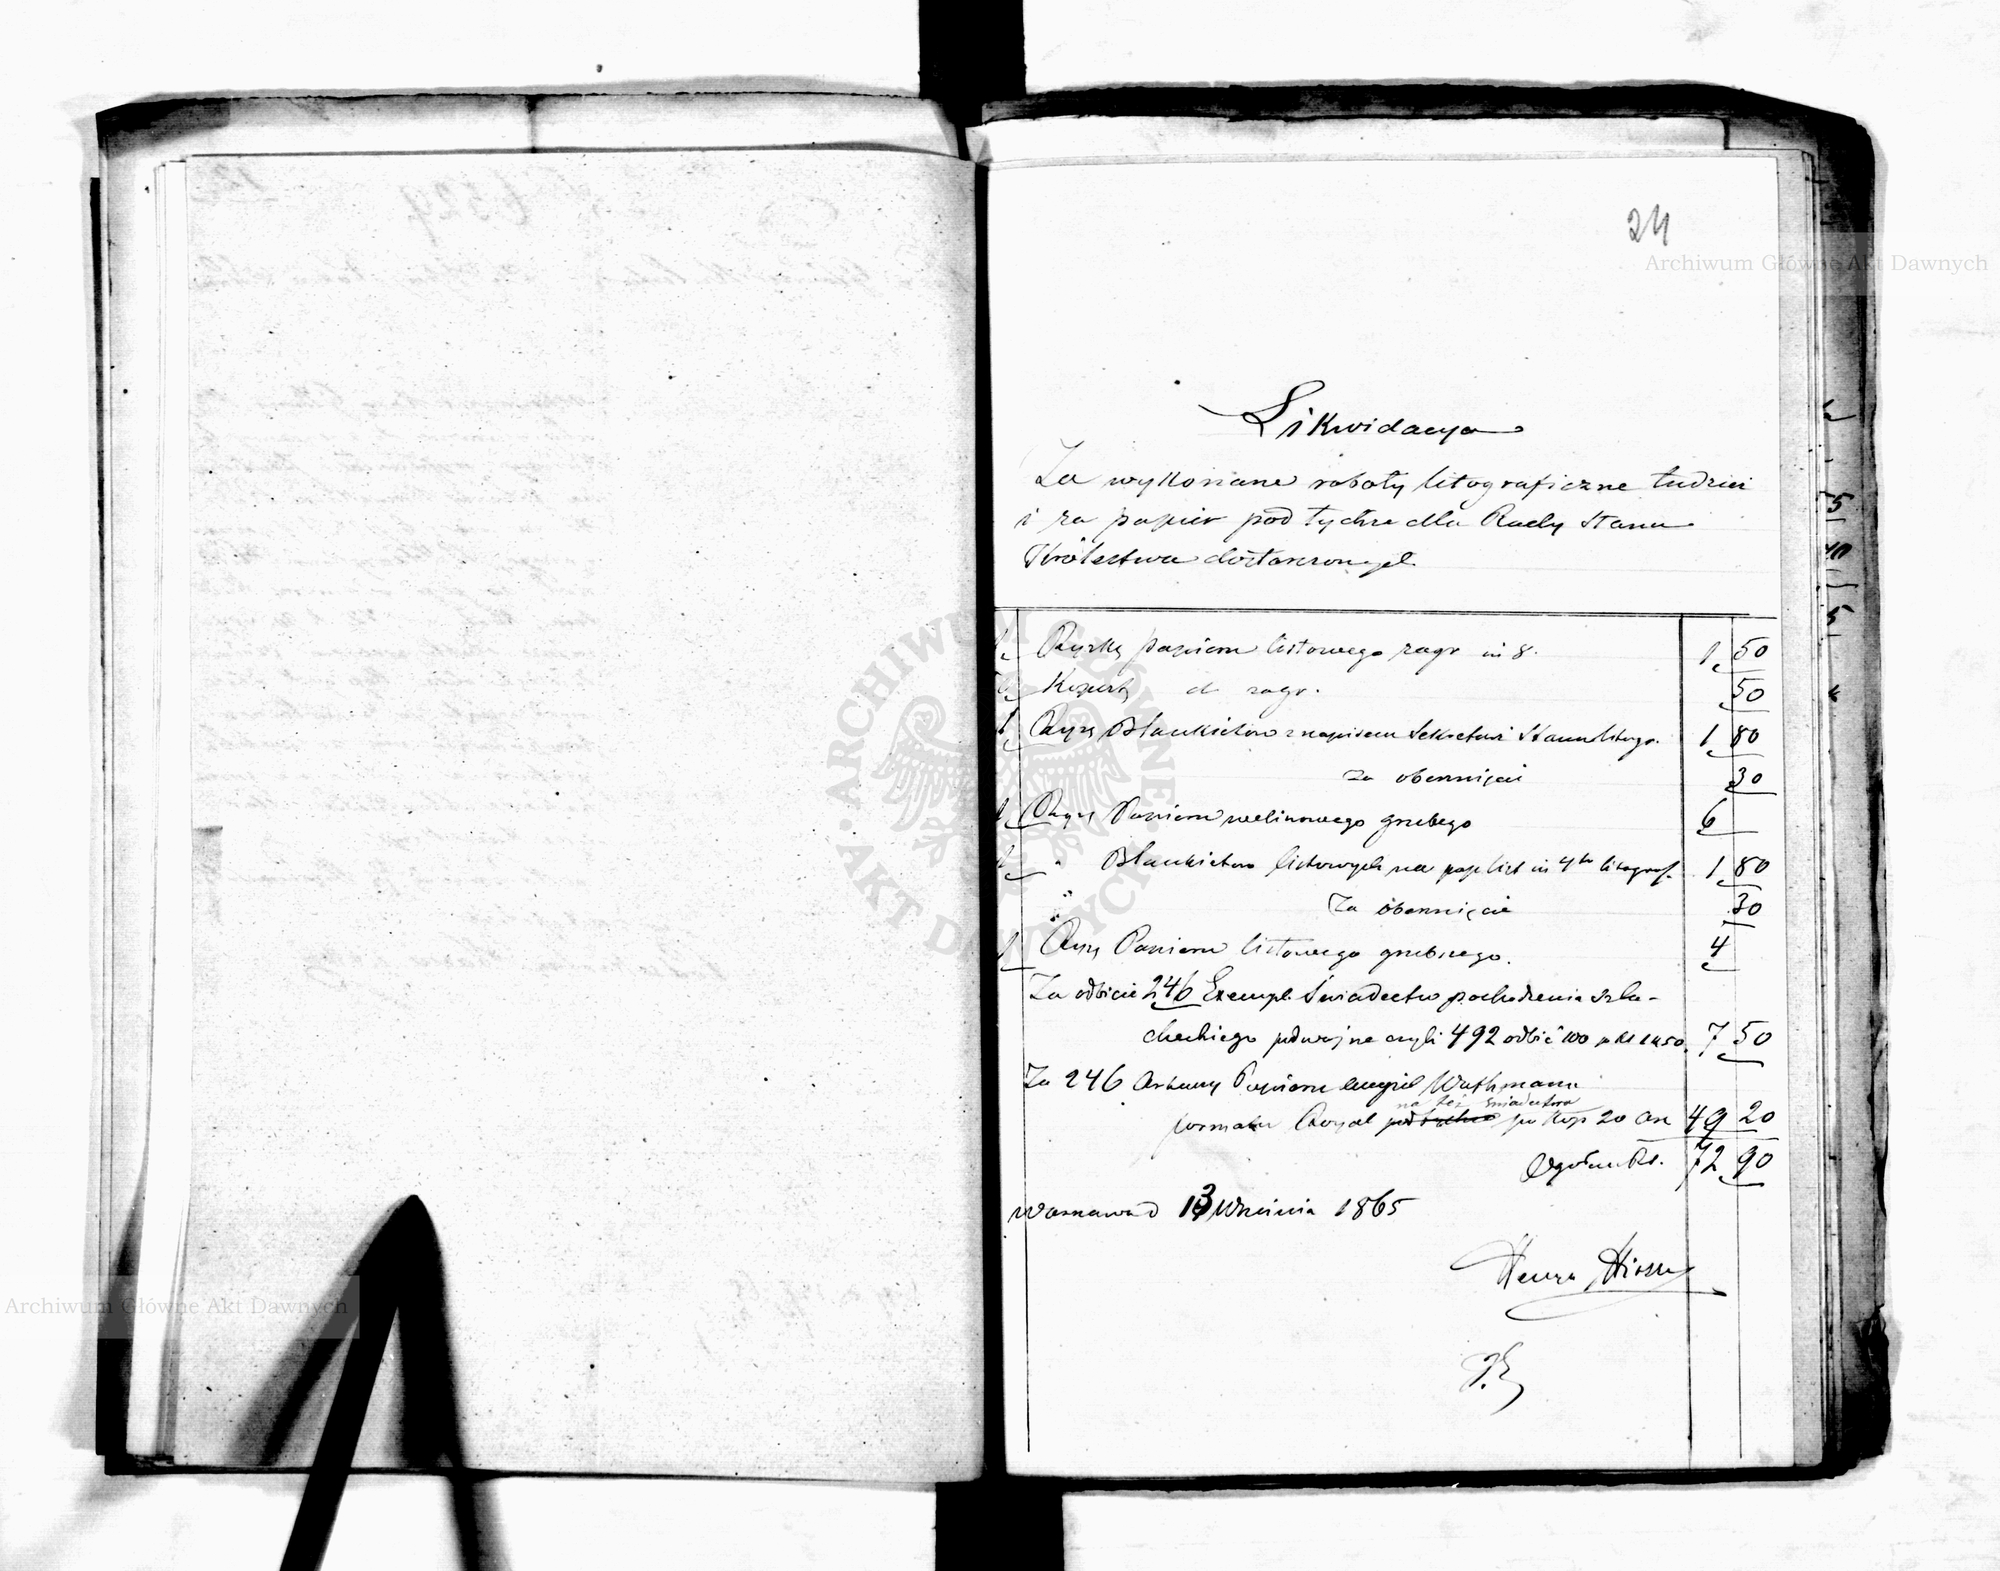 24
Archiwum Główne Akt Dawnych
Likwidacya
Za wykonane roboty litograficzne tudzież
i za papier pod tychże dla Rady Stanu
Królestwa dostarczonych
1 Ryzkę papieru listowego zagr in 8. 1 50
Koperty d zagr. 50
1 Ryzę Blankietów z napisem Sekretarz Stanu litogr. 1 80
za oberznięcie 30
1 Ryzę Papieru welinowego grubego 6
1 " Blankietów listowych na pap list in 4to litograf. 1 80
" Za oberznięcie 30
1 Ryzę Papieru listowego grubszego. 4
Za odbicie 246 Exempl. Świadectw pochodzenia szla-
checkiego podwójne czyli 492 odbić 100 p Rs 1 k 50. 7 50
Za 246 Arkuszy Papieru Wathmann
formatu Royal na też świadectwa po kop 20 ark 49 20
Ogółem Rs. 72 90
Warszawa d 13 Września 1865
Henry Hirsz
ARCHIWUM GŁÓWNE AKT DAWNYCH
Archiwum Główne Akt Dawnych